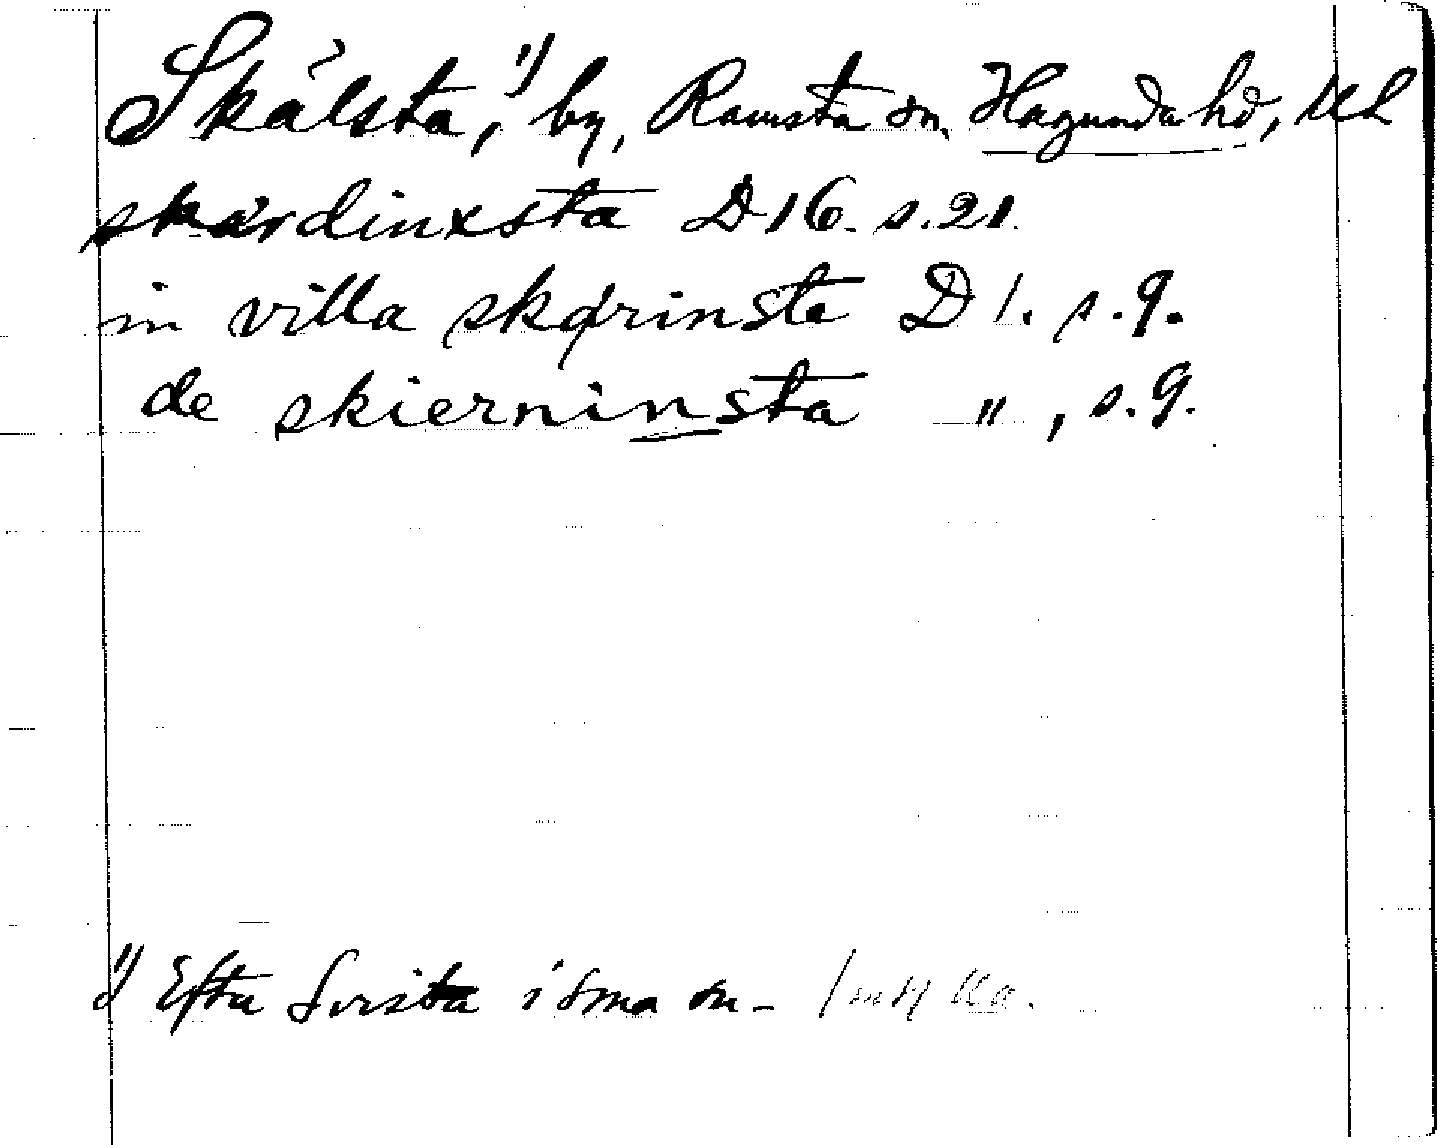 Skälsta,¹⁾ by, Ramsta sn, Hagunda hd, Upl
skärdinxsta D 16. s. 21.
in villa skørinsta D 1. s. 9.
de skierninsta " , s. 9.
¹⁾ Efter Svista i sma sn -